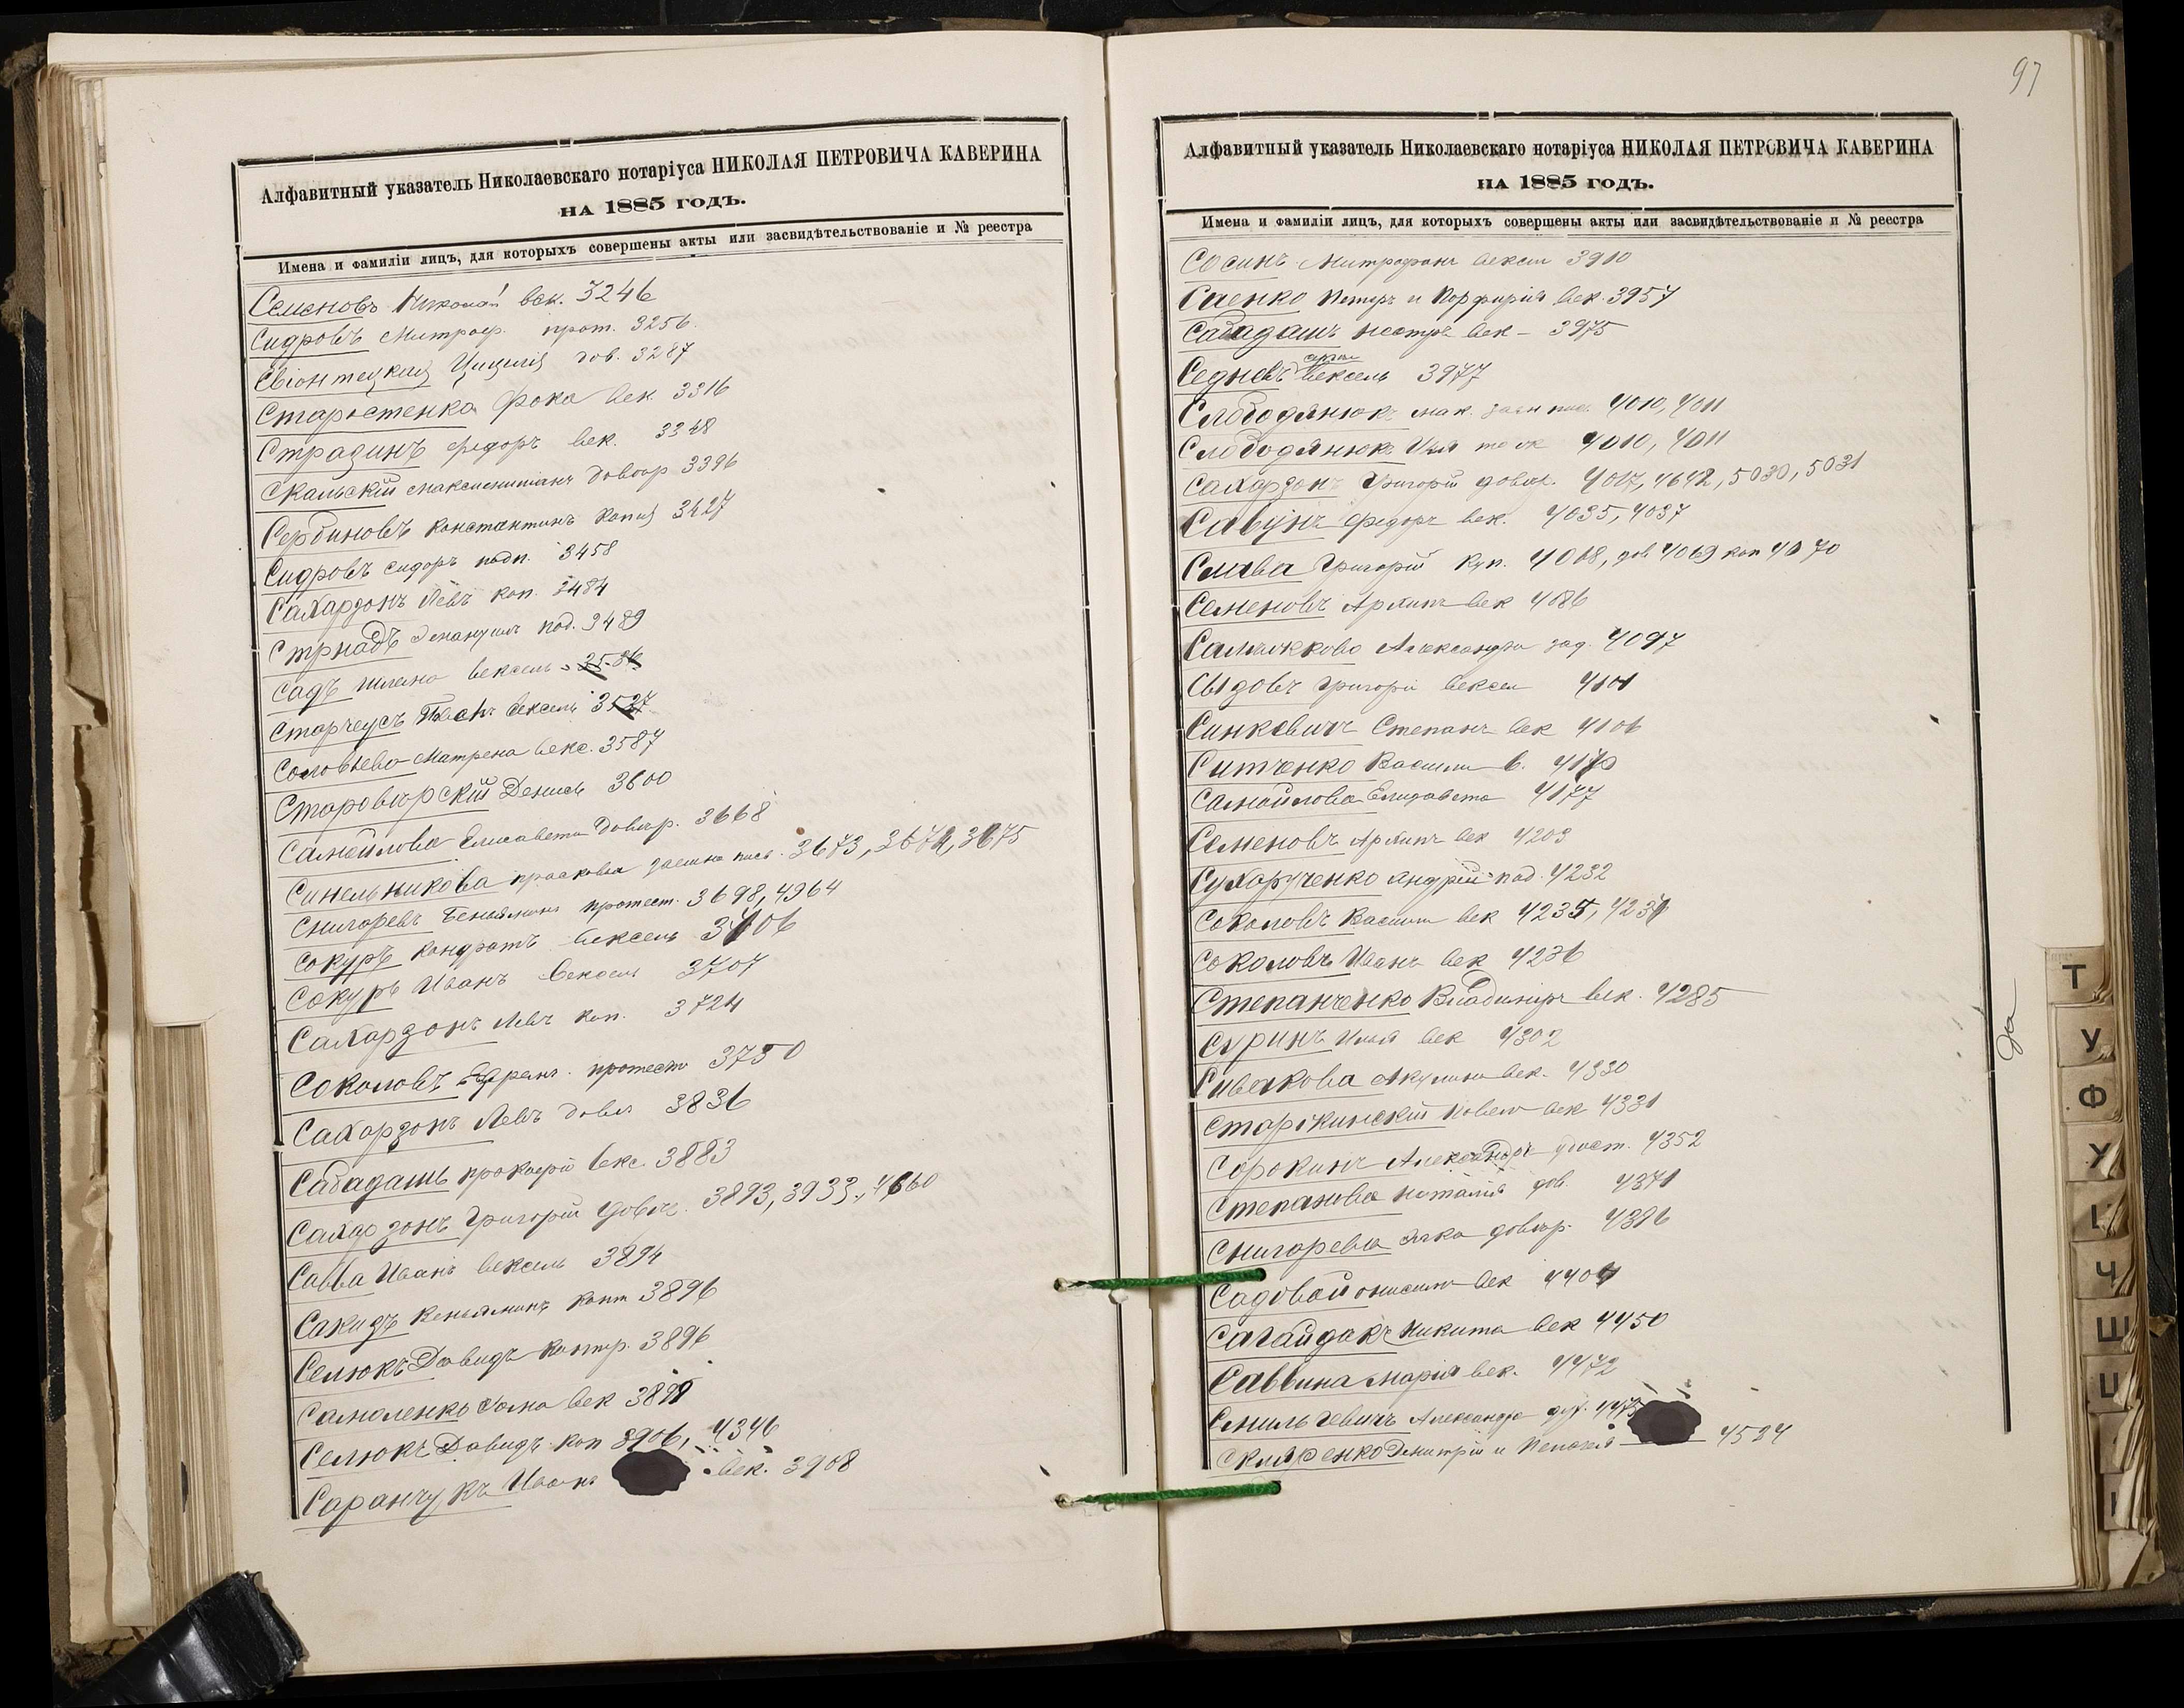 Алфавитный указатель Николаевскаго нотаріуса НИКОЛАЯ ПЕТРОВИЧА КАВЕРИНА
НА 1885 ГОДЪ.
Имена и фамиліи лицъ, для которыхъ совершены акты или засвидѣтельствованіе и № реестра
Семеновъ Николай век. 3246
Сидровъ Митроф. прот. 3256
Свіонтецкая Цицилія дов. 3287
Старостенко Фока век. 3316
Стразинъ Федоръ век. 3348
Скальскій Максимиліанъ довѣр 3396
Сербиновъ Константинъ копія 3427
Сидровъ Сидоръ подп. 3458
Сахарзонъ Левъ коп. 3484
Стрнадъ Эмануилъ под. 3489
Садъ Шлема вексель
Старчеусъ вексель 3527
Соловьева Матрена векс. 3587
Староверскій Денисъ 3600
Самойлова Елисавета довѣр. 3668
Синельникова Прасковья 3673, 3674, 3675
Снигоревъ Беньяминъ протест. 3698, 4964
Сокуръ Кондратъ вексель 3706
Сокуръ Иванъ вексель 3707
Сахарзонъ Левъ коп. 3724
Соколовъ протестъ 3750
Сахарзонъ Левъ довѣ 3836
Сабадашъ Прокофій векс. 3883
Сахарзонъ Григорій довѣ. 3893, 3933, 4660
Савва Иванъ вексель 3894
Сакидъ Веньяминъ конт 3896
Селюкъ Давидъ контр. 3896
Самоленко Фома век
Селюкъ Давидъ коп 3906, 4346
Саранчукъ Иванъ век. 3908
97
Алфавитный указатель Николаевскаго нотаріуса НИКОЛАЯ ПЕТРОВИЧА КАВЕРИНА
НА 1885 ГОДЪ.
Имена и фамиліи лицъ, для которыхъ совершены акты или засвидѣтельствованіе и № реестра
Сосинъ Митрофанъ вексел 3910
Саенко Петръ и Порфирій век. 3957
Сабадашъ Нестръ век - 3975
Седневъ вексель 3977
Слободянюкъ Мак. 4010, 4011
Слободянюкъ Илья 4010, 4011
Сахарзонъ Григорій довѣр. 4017, 4642, 5030, 5031
Савунъ Федоръ век. 4035, 4037
Слива Григорій куп. 4068, дов 4069 коп 4070
Семеновъ Архипъ век 4086
Александра зад. 4097
Свѣдовъ Григорій вексел 4101
Синкевичъ Степанъ век 4106
Ситченко Василій в. 4170
Самойлова Елизавета 4177
Семеновъ Архипъ век 4203
Сухарученко Андрій под. 4232
Соколовъ Василій век 4235, 4237
Соколовъ Иванъ век 4236
Степанченко Владиміръ век. 4285
Суринъ Илья век 4302
Сивакова Акулина век. 4330
век 4331
Сорокинъ Александръ 4352
Степанова Наталія дов. 4371
Снигорева довѣр. 4386
Садовой Онисимъ век 4404
Сагайдакъ Никита век 4450
Саввина Марія век. 4472
Смильгевичъ Александра дух. 4475
Скляренко Дмитрій и Пелагея 4534
Т
У
Ф
Х
Ц
Ч
Ш
Щ